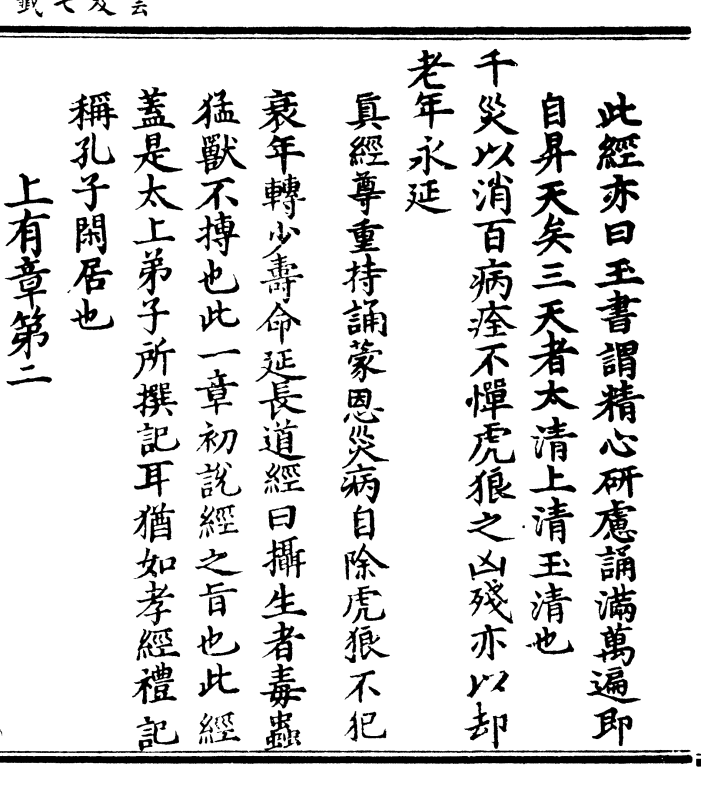 此經亦曰玉書謂精心研慮誦滿萬遍即
自昇天矣三天者太清上清玉清也
千災以消百病痊不憚虎狼之凶殘亦以却
老年永延
真經尊重持誦蒙恩災病自除虎狼不犯
衰年轉少壽命延長道經曰攝生者毒蟲
猛獸不搏也此一章初說經之旨也此經
蓋是太上弟子所撰記耳猶如孝經禮記
稱孔子閑居也
上有章第二